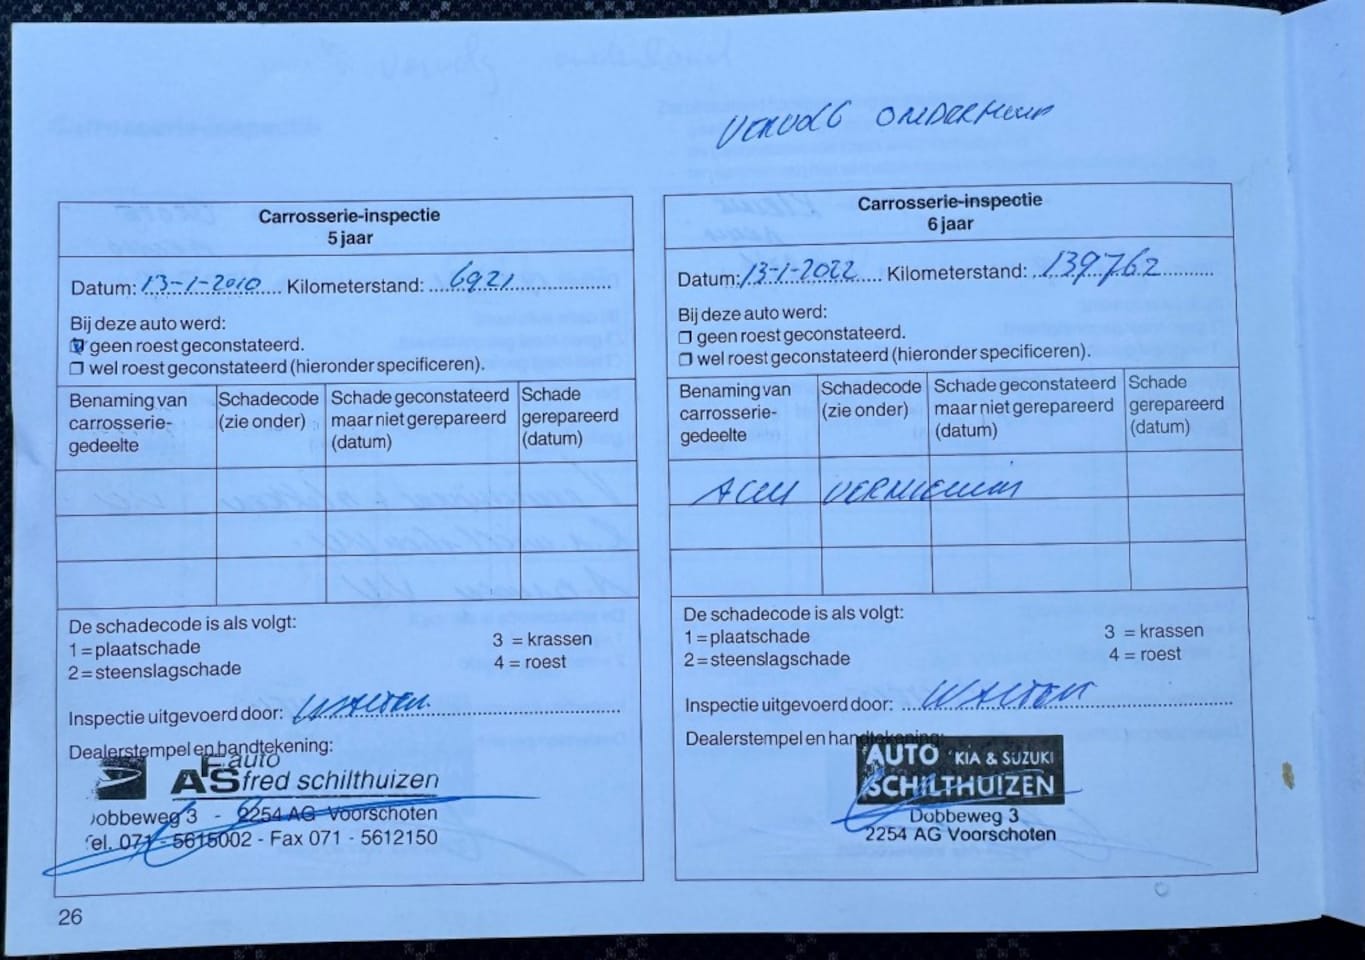 VERVOLG ONDERHOUD
Carrosserie-inspectie
5 jaar
Datum: 13-1-2010 Kilometerstand: 6921
Bij deze auto werd:
geen roest geconstateerd.
wel roest geconstateerd (hieronder specificeren).
Benaming van carrosserie-gedeelte
Schadecode (zie onder)
Schade geconstateerd maar niet gerepareerd (datum)
Schade gerepareerd (datum)
De schadecode is als volgt:
1 = plaatschade 3 = krassen
2 = steenslagschade 4 = roest
Inspectie uitgevoerd door:
Dealerstempel en handtekening:
auto
AFS fred schilthuizen
Dobbeweg 3 - 2254 AG Voorschoten
Tel. 071 - 5615002 - Fax 071 - 5612150
26
Carrosserie-inspectie
6 jaar
Datum: 13-1-2022 Kilometerstand: 139762
Bij deze auto werd:
geen roest geconstateerd.
wel roest geconstateerd (hieronder specificeren).
Benaming van carrosserie-gedeelte
Schadecode (zie onder)
Schade geconstateerd maar niet gerepareerd (datum)
Schade gerepareerd (datum)
ACCU VERNIEUWD
De schadecode is als volgt:
1 = plaatschade 3 = krassen
2 = steenslagschade 4 = roest
Inspectie uitgevoerd door:
Dealerstempel en handtekening:
AUTO KIA & SUZUKI
SCHILTHUIZEN
Dobbeweg 3
2254 AG Voorschoten